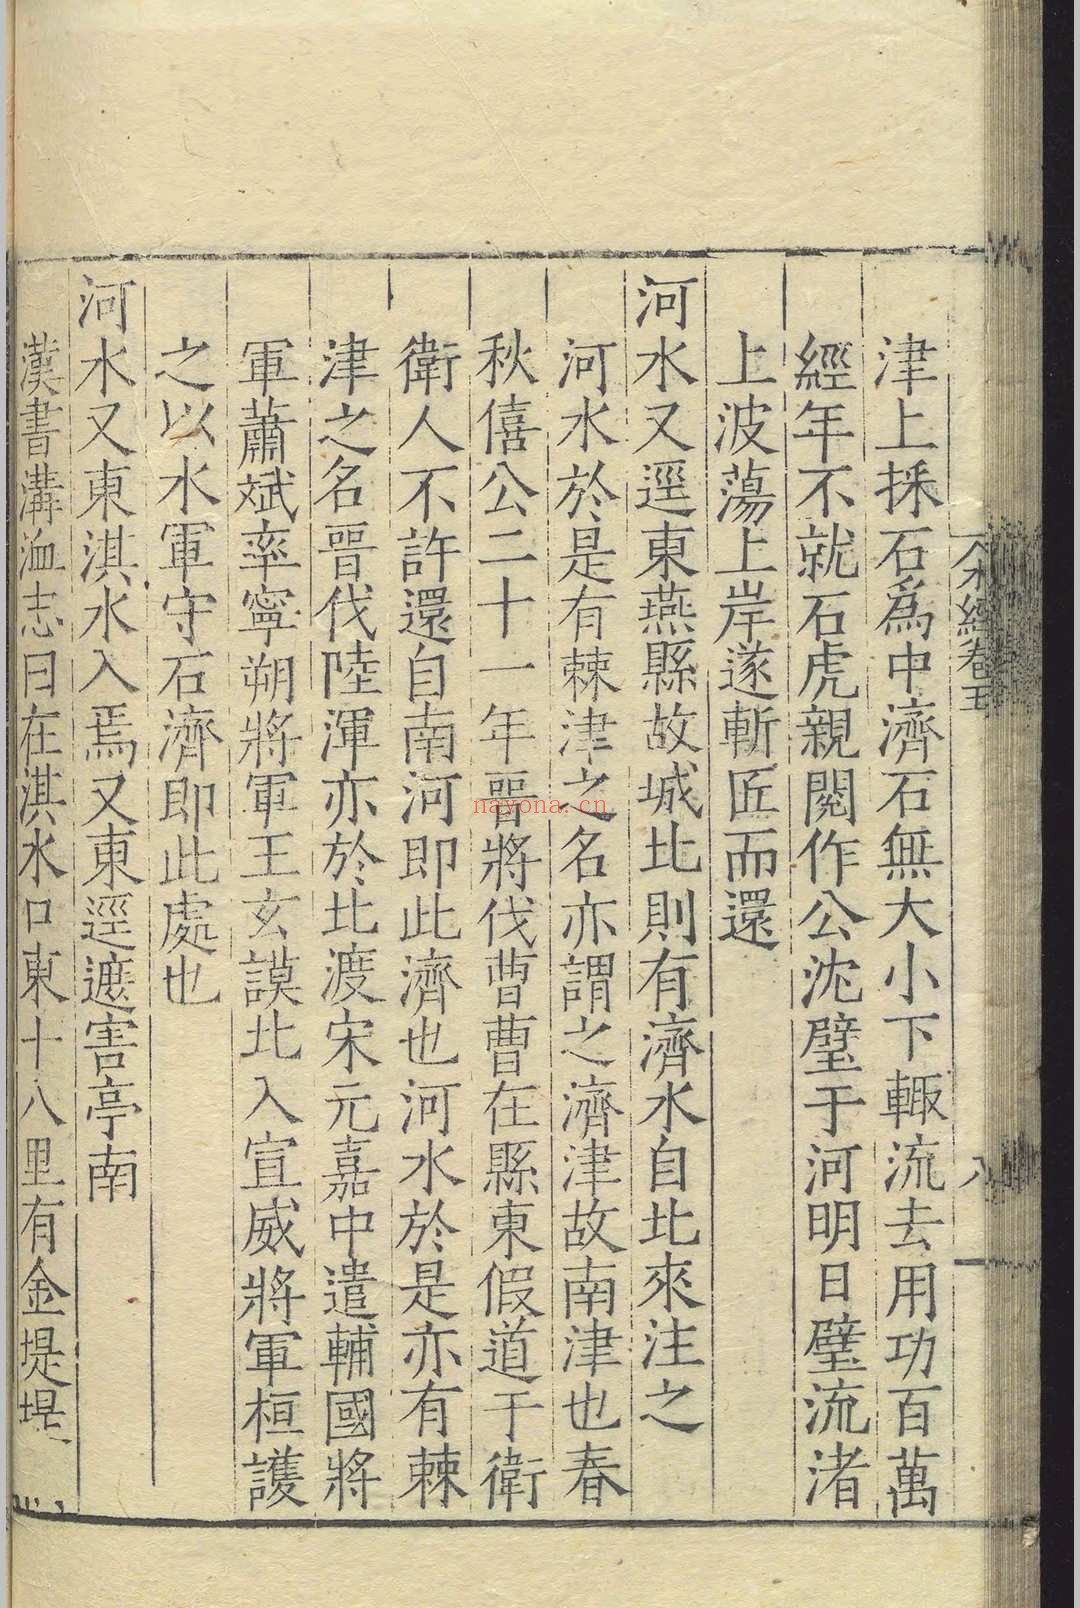 津上採石爲中濟石無大小下輙流去用功百萬
經年不就石虎親閱作公沈璧于河明日璧流渚
上波蕩上岸遂斬匠而還
河水又逕東燕縣故城北則有濟水自北來注之
河水於是有棘津之名亦謂之濟津故南津也春
秋僖公二十一年晉將伐曹曹在縣東假道于衛
衛人不許還自南河即此濟也河水於是亦有棘
津之名晉伐陸渾亦於此渡宋元嘉中遣輔國將
軍蕭斌率寧朔將軍王玄謨北入宣威將軍桓護
之以水軍守石濟即此處也
河水又東淇水入焉又東逕遮害亭南
漢書溝洫志曰在淇水口東十八里有金堤堤
水經卷五
八
nayona.cn